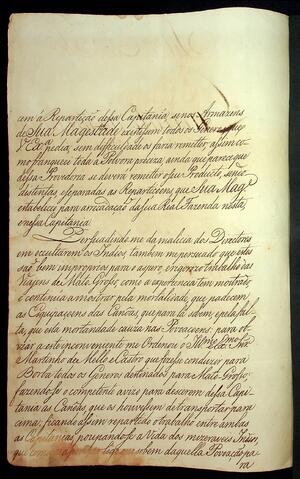 cem á Repartiçaõ dessa Capitanîa; se nos Armazens
de Sua Magestade existissem todos os Generos que
V. Ex.ª pedia, sem difficuldade os fara remetter, assim co-
mo franqueei toda a Polvora precisa, ainda que parece que
dessa Provedoria se deveria remetter o seu Producto, sendo
distinctas, e separadas as Repartiçoens que Sua Mag.e
estabeleceo para arrecadaçaõ da Sua Real Fazenda nesta,
e nessa Capitanîa.
Persuadindo-me da malicia dos Directores
em occultarem os Indios, tambem me persuado que estes
saõ bem improprios para o aspero, e rigoroso trabalho das
Viagens de Mato Grosso, como a experiencia tem mostrado,
e continúa a mostrar pela mortalidade, que padecem
as Equipaçoens das Canôas, que para lá sobem, e pela fal-
ta, que esta mortandade cauza nas Povoaçoens: para ob-
viar a este inconveniente me Ordenou o Ill.mo e Ex.mo S.r
Martinho de Mello e Castro que fizesse conduzir para
Borba todos os Generos destinados para Mato Grosso,
fazendo-se o competente avizo para descerem dessa Capi-
tanîa as Canôas, que os houvessem de transportar para
cima, ficando assim repartido o trabalho entre ambas
as Capitanîas, e poupando-se a Vida dos mizeraveis Indios,
que como sobem daquella Povoaçaõ pa-
ra